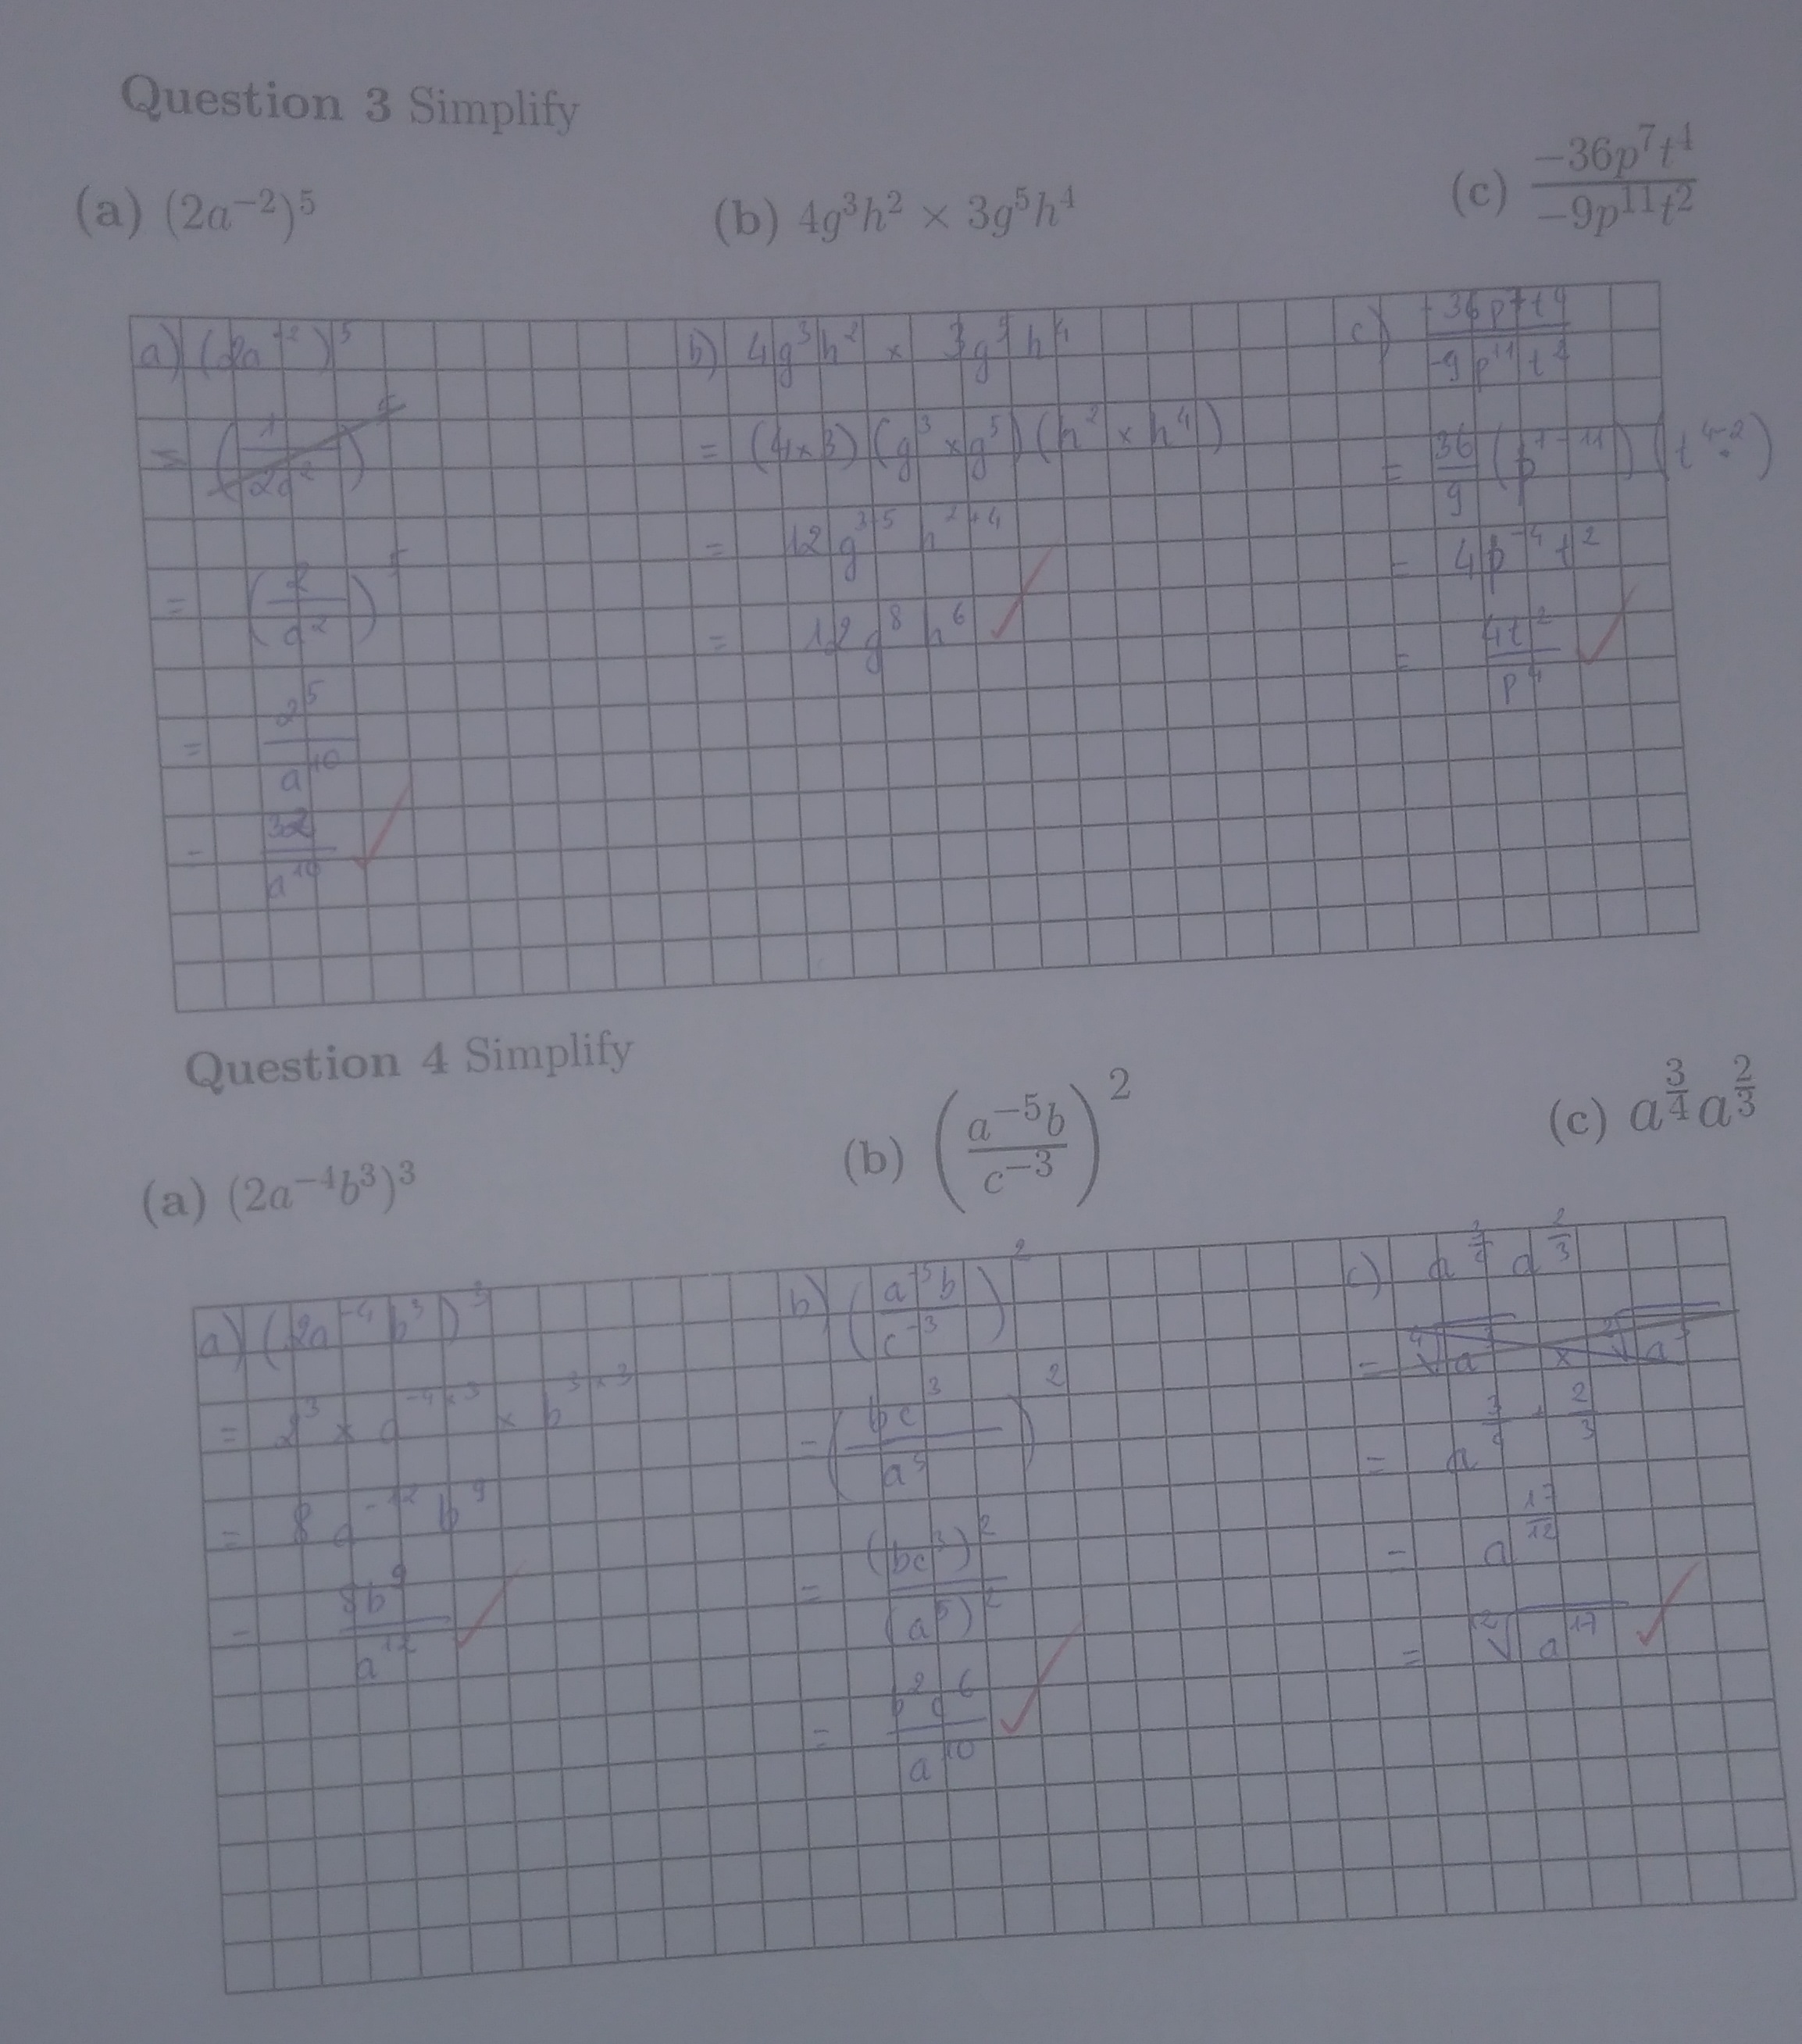 Question 3 Simplify
(a) (2a⁻²)⁵ (b) 4g³h² × 3g⁵h⁴ (c) −36p⁷t⁴ / −9p¹¹t²
a) (2a⁻²)⁵
= (1 / 2a²)⁵
= (2 / a²)⁵
= 2⁵ / a¹⁰
= 32 / a¹⁰
b) 4g³h² × 3g⁵h⁴
= (4×3)(g³×g⁵)(h²×h⁴)
= 12g³⁺⁵h²⁺⁴
= 12g⁸h⁶
c) −36p⁷t⁴ / −9p¹¹t²
= 36/9 (p⁷⁻¹¹)(t⁴⁻²)
= 4p⁻⁴t²
= 4t² / p⁴
Question 4 Simplify
(a) (2a⁻⁴b³)³ (b) (a⁻⁵b / c⁻³)² (c) a^(3/4) a^(2/3)
a) (2a⁻⁴b³)³
= 2³ × a^(−4×3) × b^(3×3)
= 8a⁻¹²b⁹
= 8b⁹ / a¹²
b) (a⁻⁵b / c⁻³)²
= (bc³ / a⁵)²
= (bc³)² / (a⁵)²
= b²c⁶ / a¹⁰
c) a^(3/4) a^(2/3)
= a^(3/4 + 2/3)
= a^(17/12)
= ¹²√a¹⁷